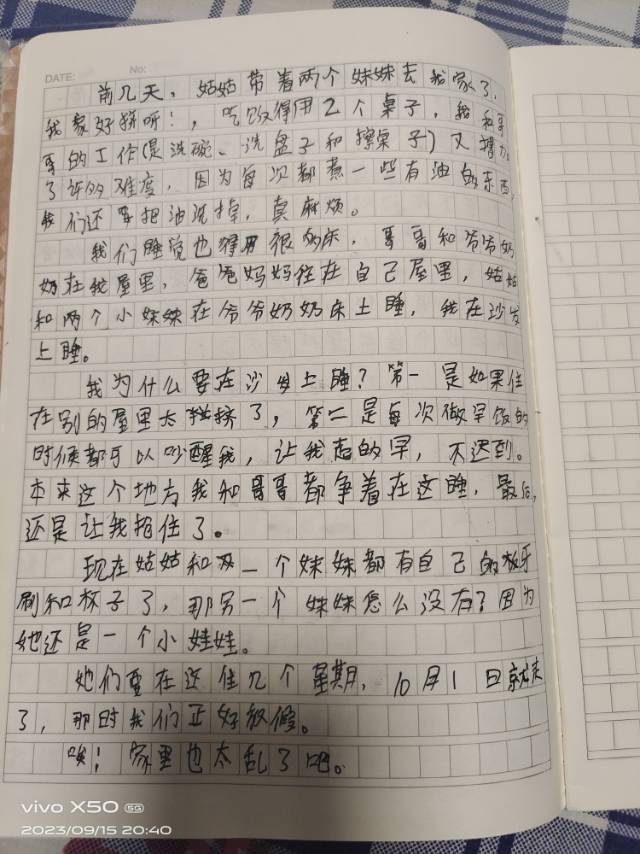 DATE: No:
前几天，姑姑带着两个妹妹去我家了，
我家好挤呀！，吃饭得用2个桌子，我和哥
哥的工作(是洗碗、洗盆子和擦桌子)又增加
了许多难度，因为每次都煮一些有油的东西，
我们还要把油洗掉，真麻烦。
我们睡觉也得用很多床，哥哥和爷爷奶
奶在我屋里，爸爸妈妈住在自己屋里，姑姑
和两个小妹妹在爷爷奶奶床上睡，我在沙发
上睡。
我为什么要在沙发上睡？第一是如果住
在别的屋里太挤了，第二是每次做早饭的
时候都可以吵醒我，让我起的早，不迟到。
本来这个地方我和哥哥都争着在这睡，最后，
还是让我抢住了。
现在姑姑和一个妹妹都有自己的牙
刷和杯子了，那另一个妹妹怎么没有？因为
她还是一个小娃娃。
她们要在这住几个星期，10月1日就走
了，那时我们正好放假。
唉！家里也太乱了吧。
vivo X50 5G
2023/09/15 20:40